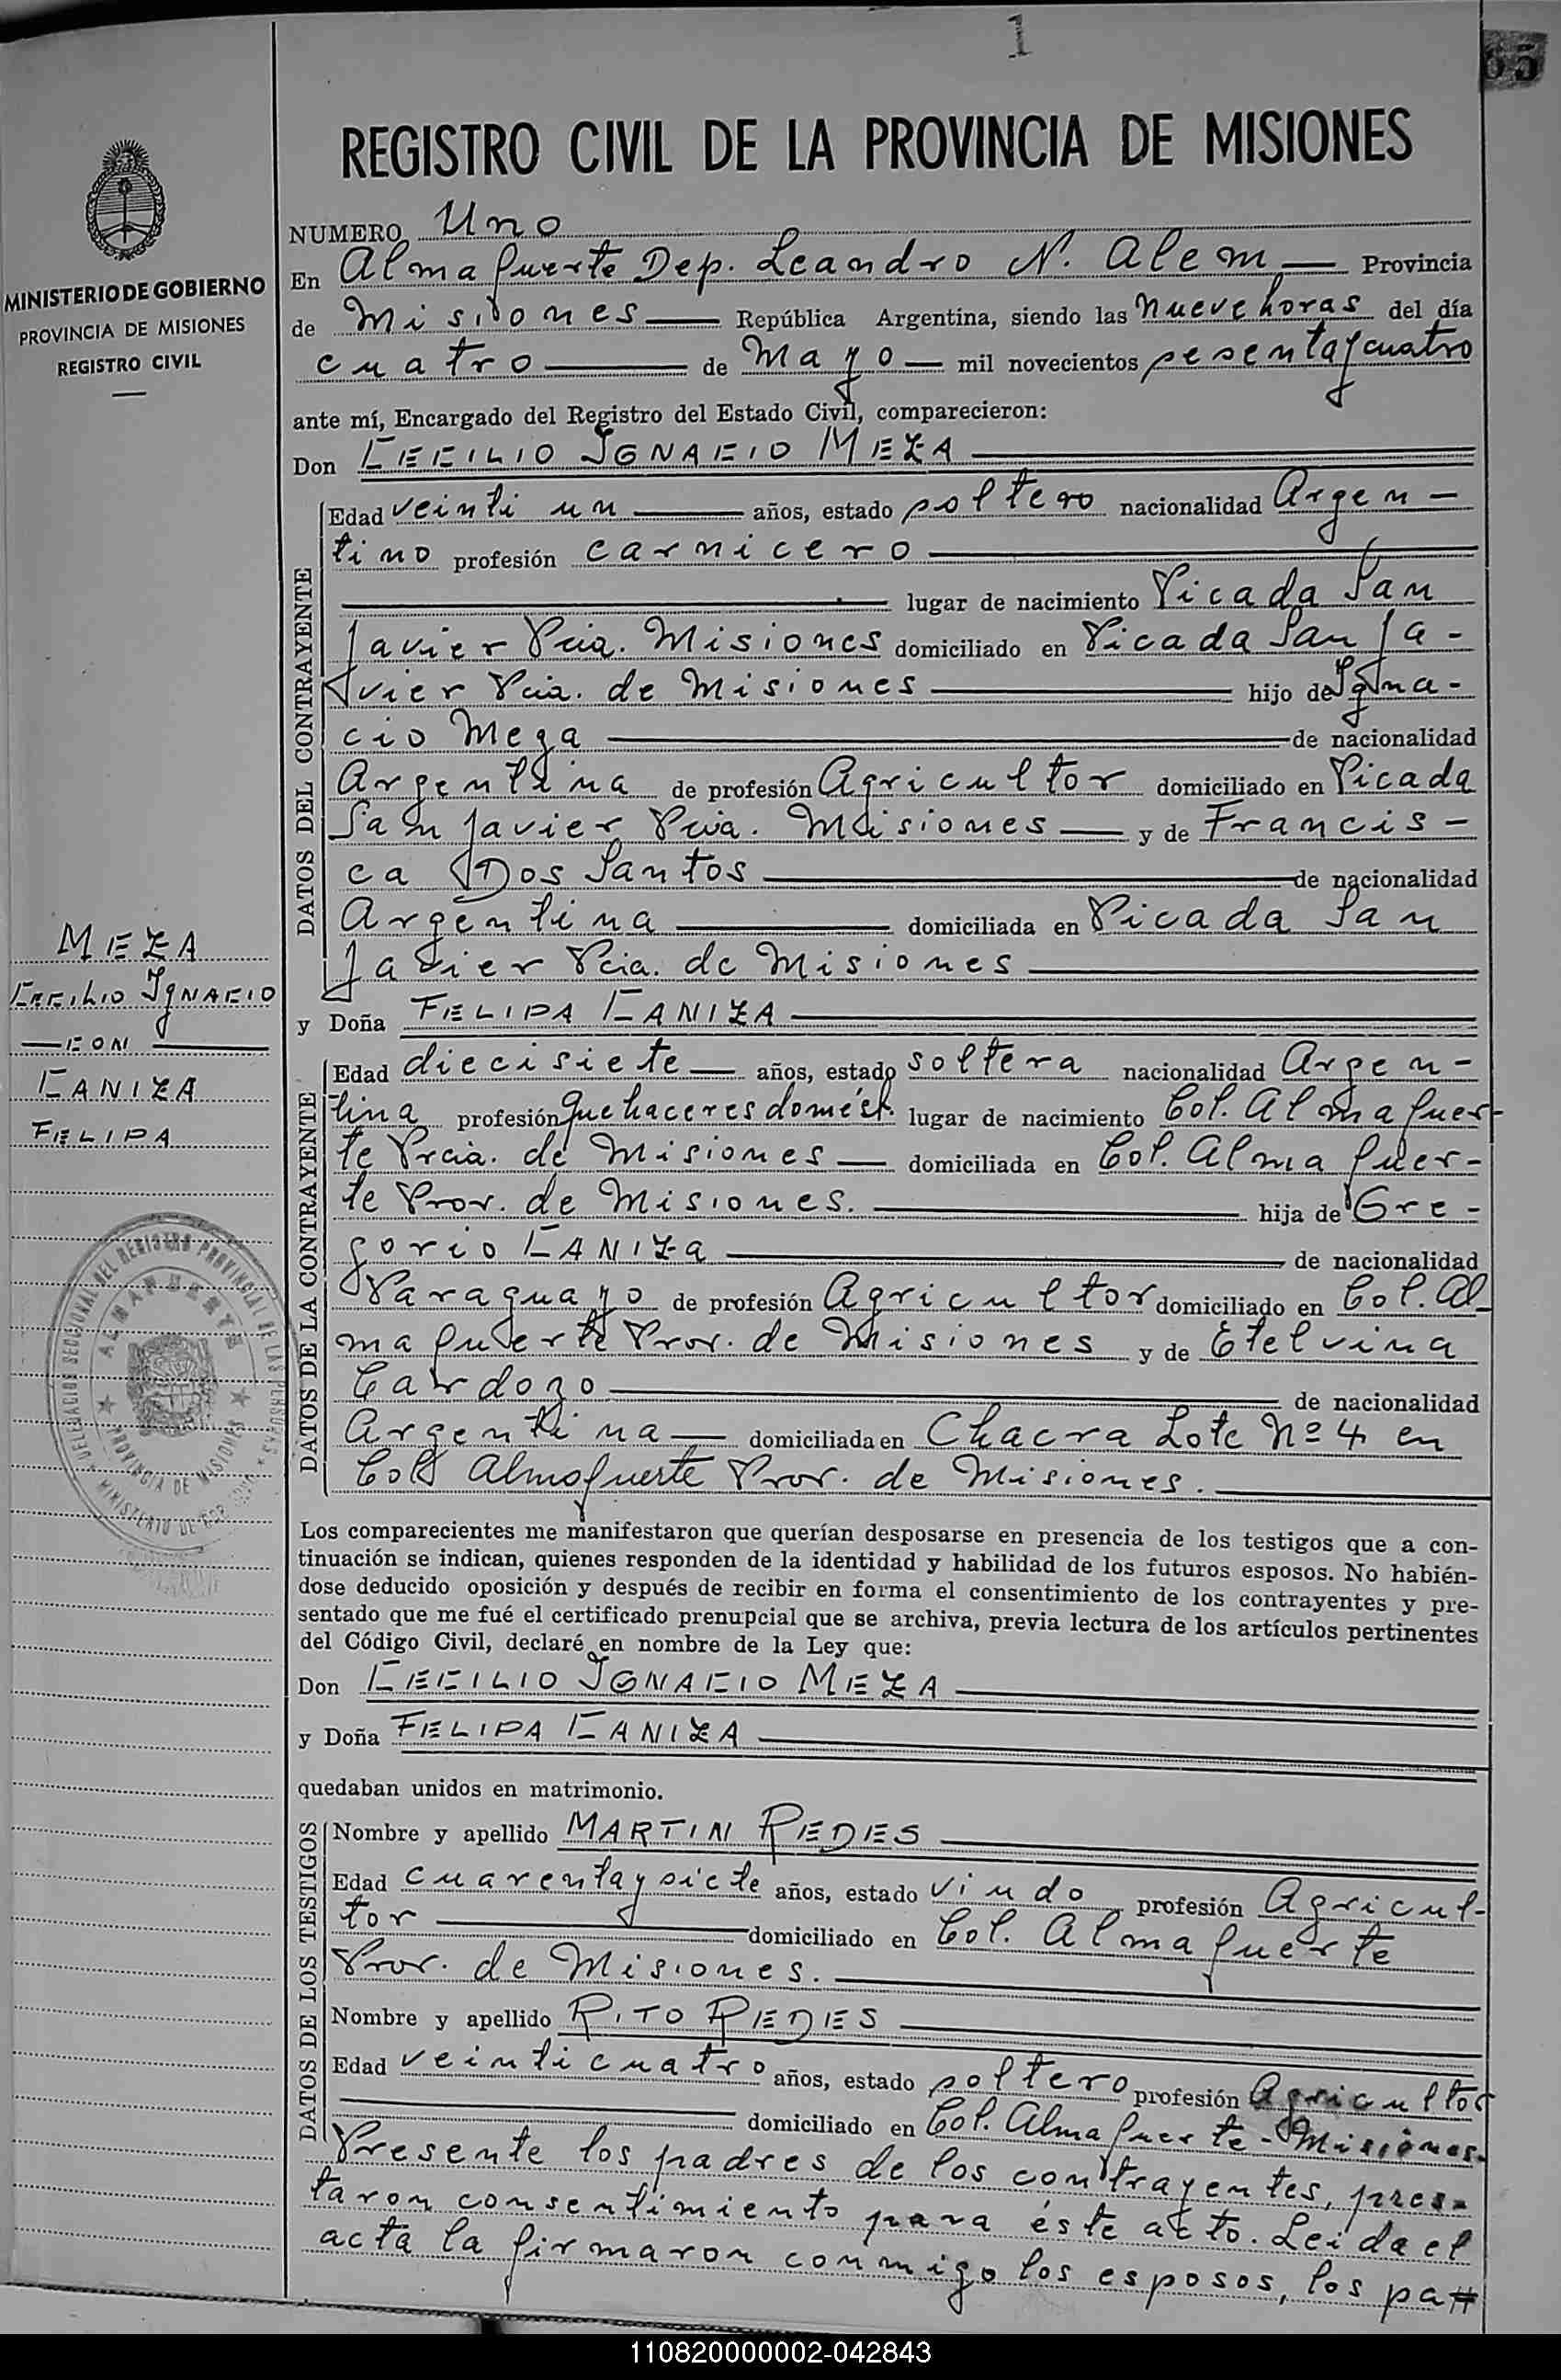 1
65
REGISTRO CIVIL DE LA PROVINCIA DE MISIONES
MINISTERIO DE GOBIERNO
PROVINCIA DE MISIONES
REGISTRO CIVIL
NUMERO Uno
En Almafuerte Dep. Leandro N. Alem — Provincia
de Misiones — República Argentina, siendo las nueve horas del día
cuatro — de Mayo — mil novecientos sesenta y cuatro
ante mí, Encargado del Registro del Estado Civil, comparecieron:
Don CECILIO IGNACIO MEZA
DATOS DEL CONTRAYENTE
Edad veinti un — años, estado soltero nacionalidad Argen-
tino profesión carnicero
lugar de nacimiento Picada San
Javier Pcia. Misiones domiciliado en Picada San Ja-
vier Pcia. de Misiones — hijo de Igna-
cio Meza — de nacionalidad
Argentina de profesión Agricultor domiciliado en Picada
San Javier Pcia. Misiones — y de Francis-
ca Dos Santos — de nacionalidad
Argentina — domiciliada en Picada San
Javier Pcia. de Misiones
y Doña FELIPA CANIZA
DATOS DE LA CONTRAYENTE
Edad diecisiete — años, estado soltera nacionalidad Argen-
tina profesión Quehaceres domést. lugar de nacimiento Col. Almafuer-
te Prcia. de Misiones — domiciliada en Col. Almafuer-
te Prov. de Misiones. — hija de Gre-
gorio CANIZA — de nacionalidad
Paraguayo de profesión Agricultor domiciliado en Col. Al-
mafuerte Prov. de Misiones y de Etelvina
Cardozo — de nacionalidad
Argentina — domiciliada en Chacra Lote Nº 4 en
Col. Almafuerte Prov. de Misiones.
MEZA
CECILIO IGNACIO
— CON —
CANIZA
FELIPA
DELEGACION SECCIONAL DEL REGISTRO PROVINCIAL DE LAS PERSONAS
ALMAFUERTE
PROVINCIA DE MISIONES
MINISTERIO DE GOB
Los comparecientes me manifestaron que querían desposarse en presencia de los testigos que a con-
tinuación se indican, quienes responden de la identidad y habilidad de los futuros esposos. No habién-
dose deducido oposición y después de recibir en forma el consentimiento de los contrayentes y pre-
sentado que me fué el certificado prenupcial que se archiva, previa lectura de los artículos pertinentes
del Código Civil, declaré en nombre de la Ley que:
Don CECILIO IGNACIO MEZA
y Doña FELIPA CANIZA
quedaban unidos en matrimonio.
DATOS DE LOS TESTIGOS
Nombre y apellido MARTIN REDES
Edad cuarenta y siete años, estado viudo profesión Agricul-
tor — domiciliado en Col. Almafuerte
Prov. de Misiones.
Nombre y apellido RITO REDES
Edad veinticuatro años, estado soltero profesión Agricultor
domiciliado en Col. Almafuerte - Misiones.
Presente los padres de los contrayentes, pres-
taron consentimiento para éste acto. Leída el
acta la firmaron conmigo los esposos, los pa#
110820000002-042843